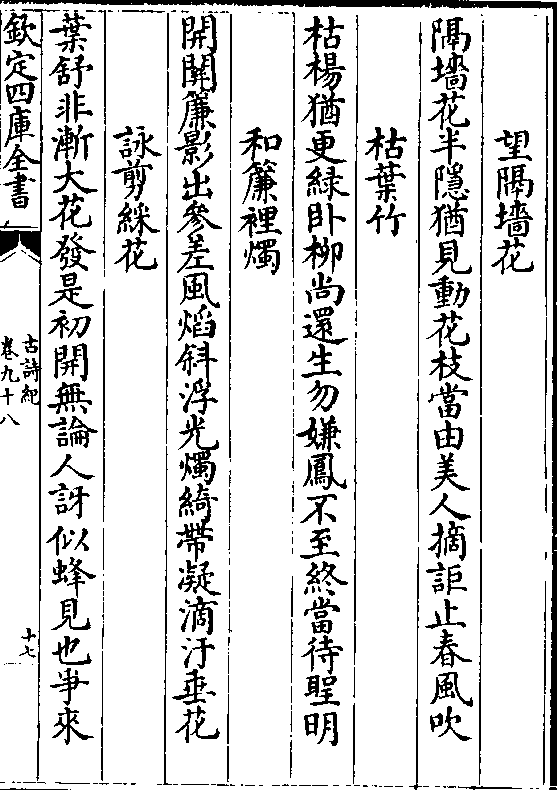 望隔墻花
隔墻花半隱猶見動花枝當由美人摘詎止春風吹
枯葉竹
枯楊猶更綠卧柳尚還生勿嫌鳳不至終當待聖明
和簾裡燭
開關簾影出參差風熖斜浮光燭綺帶凝滴汙垂花
詠剪綵花
葉舒非漸大花發是初開無論人訝似蜂見也爭來
欽定四庫全書
古詩紀
卷九十八
十七